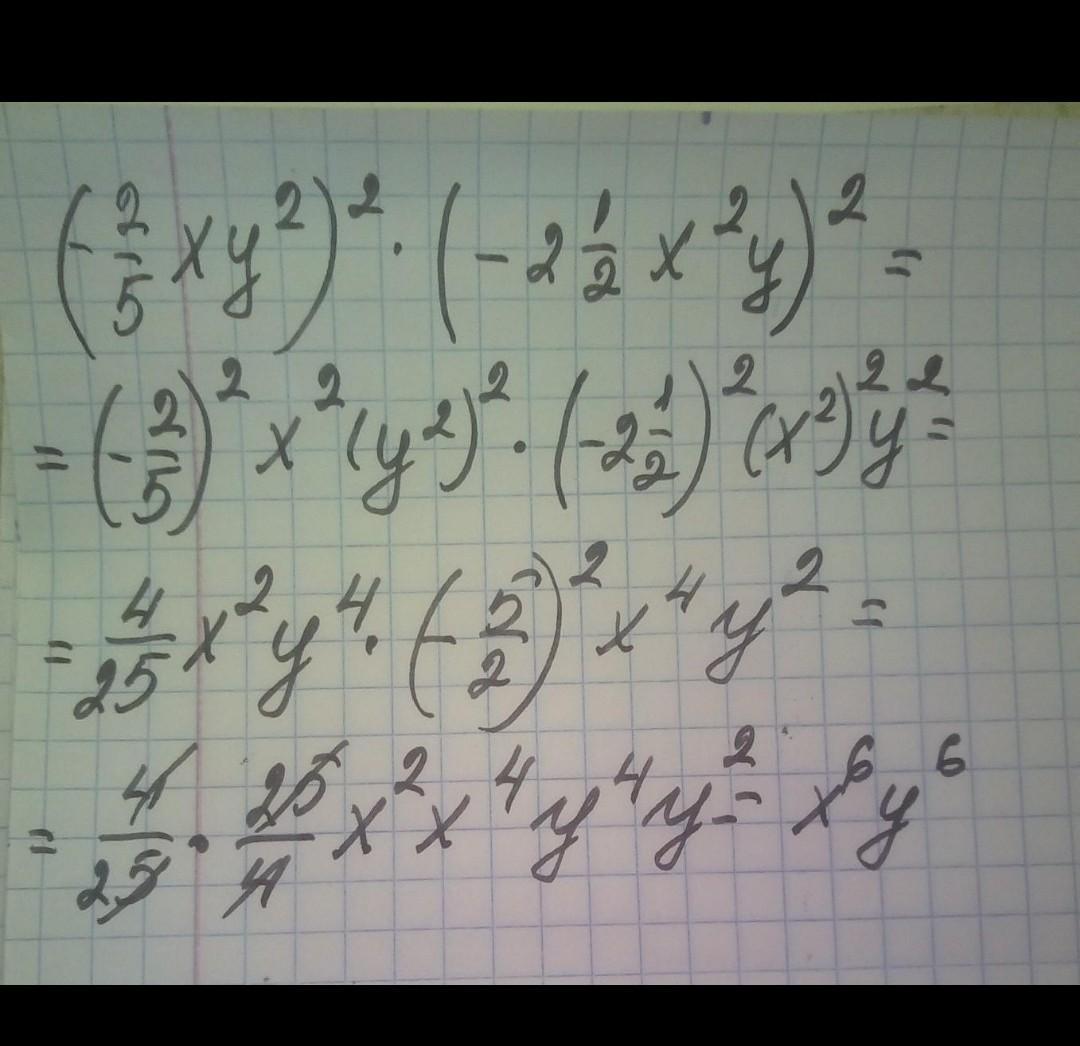 (-2/5 xy²)² · (-2 1/2 x²y)² =
= (-2/5)² x² (y²)² · (-2 1/2)² (x²)² y² =
= 4/25 x² y⁴ · (-5/2)² x⁴ y² =
= 4/25 · 25/4 x² x⁴ y⁴ y² = x⁶ y⁶